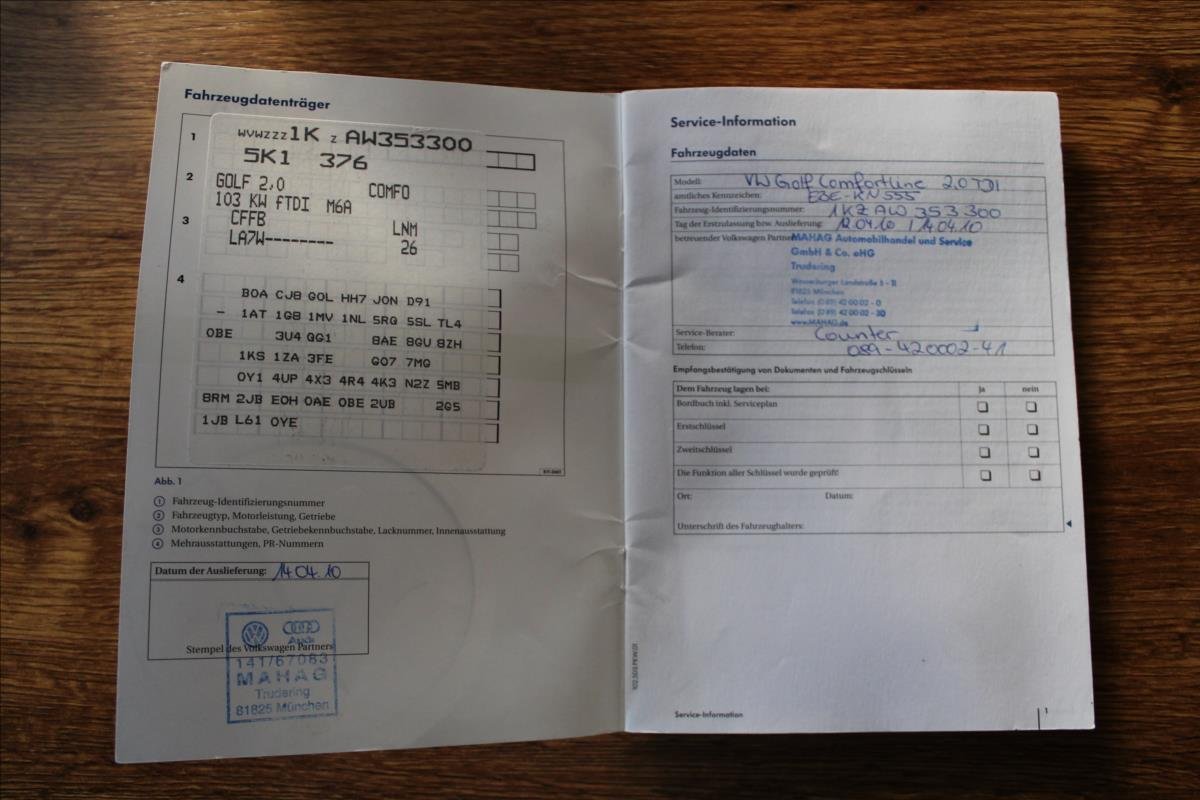 Fahrzeugdatenträger
1
WVWZZZ1K Z AW353300
5K1 376
2
GOLF 2,0 COMFO
103 KW fTDI M6A
3
CFFB LNM
LA7W-------- 26
4
BOA CJ8 GOL HH7 JON D91
– 1AT 1G8 1MV 1NL 5RG 5SL TL4
OBE 3U4 GG1 8AE 8GU 8ZH
1KS 1ZA 3FE GO7 7MG
OY1 4UP 4X3 4R4 4K3 N2Z 5MB
8RM 2JB EOH OAE OBE 2UB 2G5
1JB L61 OYE
Abb. 1
1 Fahrzeug-Identifizierungsnummer
2 Fahrzeugtyp, Motorleistung, Getriebe
3 Motorkennbuchstabe, Getriebekennbuchstabe, Lacknummer, Innenausstattung
4 Mehrausstattungen, PR-Nummern
Datum der Auslieferung: 14.04.10
Audi
Stempel des Volkswagen Partners
141/67083
MAHAG
Trudering
81825 München
Service-Information
Fahrzeugdaten
Modell: VW Golf Comfortline 2.0 TDI
amtliches Kennzeichen: EBE-KN 555
Fahrzeug-Identifizierungsnummer: 1KZ AW 353 300
Tag der Erstzulassung bzw. Auslieferung: 12.04.10 / 14.04.10
betreuender Volkswagen Partner: MAHAG Automobilhandel und Service
GmbH & Co. oHG
Trudering
Wasserburger Landstraße 5 - 11
81825 München
Telefon (0 89) 42 00 02 - 0
Telefax (0 89) 42 00 02 - 30
www.MAHAG.de
Service-Berater: Counter
Telefon: 089-420002-41
Empfangsbestätigung von Dokumenten und Fahrzeugschlüsseln
Dem Fahrzeug lagen bei: ja nein
Bordbuch inkl. Serviceplan
Erstschlüssel
Zweitschlüssel
Die Funktion aller Schlüssel wurde geprüft!
Ort: Datum:
Unterschrift des Fahrzeughalters:
Service-Information 1